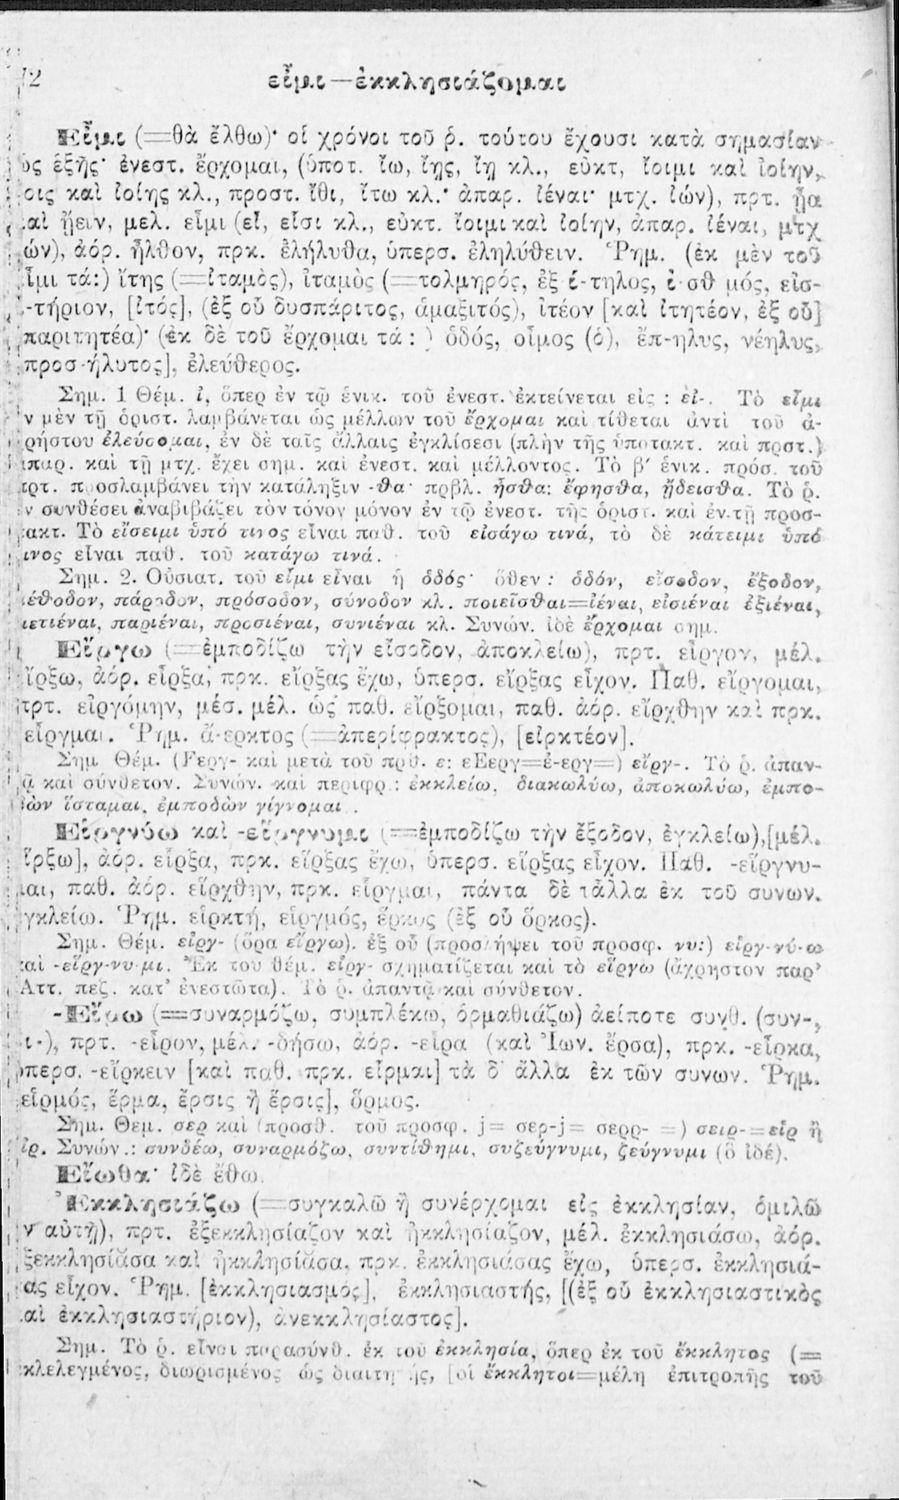 72
εἶμι—ἐκκλησιάζομαι
Εἶμι (=θὰ ἔλθω)· οἱ χρόνοι τοῦ ῥ. τούτου ἔχουσι κατὰ σημασίαν
ὡς ἑξῆς· ἐνεστ. ἔρχομαι, (ὑποτ. ἴω, ἴῃς, ἴῃ κλ., εὐκτ, ἴοιμι καὶ ἰοίην,
.οις καὶ ἰοίης κλ., προστ. ἴθι, ἴτω κλ.· ἀπαρ. ἰέναι· μτχ. ἰών), πρτ. ᾖα
.αὶ ᾔειν, μελ. εἶμι (εἶ, εἶσι κλ., εὐκτ. ἴοιμι καὶ ἰοίην, ἀπαρ. ἰέναι, μτχ
ών), ἀόρ. ἦλθον, πρκ. ἐλήλυθα, ὑπερσ. ἐληλύθειν. Ῥημ. (ἐκ μὲν τοῦ
ἶμι τά:) ἴτης (=ἰταμὸς), ἰταμὸς (=τολμηρός, ἐξ ἐ-τηλος, ἐ-σθ μός, εἰσ-
-τήριον, [ἰτός], (ἐξ οὗ δυσπάριτος, ἁμαξιτός), ἰτέον [καὶ ἰτητέον, ἐξ οὗ]
παριτητέα)· (ἐκ δὲ τοῦ ἔρχομαι τά:) ὁδός, οἶμος (ὁ), ἔπ-ηλυς, νέηλυς,
προσ-ήλυτος], ἐλεύθερος.
Σημ. 1 Θέμ. ἰ, ὅπερ ἐν τῷ ἑνικ. τοῦ ἐνεστ. ἐκτείνεται εἰς: εἰ-. Τὸ εἶμι
ν μὲν τῇ ὁριστ. λαμβάνεται ὡς μέλλων τοῦ ἔρχομαι καὶ τίθεται ἀντὶ τοῦ ἀ-
ρήστου ἐλεύσομαι, ἐν δὲ ταῖς ἄλλαις ἐγκλίσεσι (πλὴν τῆς ὑποτακτ. καὶ πρστ.)
ἀπαρ. καὶ τῇ μτχ. ἔχει σημ. καὶ ἐνεστ. καὶ μέλλοντος. Τὸ β΄ ἑνικ. πρόσ. τοῦ
πρτ. προσλαμβάνει τὴν κατάληξιν -θα· πρβλ. ἦσθα: ἔφησθα, ᾔδεισθα. Τὸ ῥ.
ν συνθέσει ἀναβιβάζει τὸν τόνον μόνον ἐν τῷ ἐνεστ. τῆς ὁριστ. καὶ ἐν τῇ προσ-
τακτ. Τὸ εἴσειμι ὑπό τινος εἶναι παθ. τοῦ εἰσάγω τινά, τὸ δὲ κάτειμι ὑπό
τινος εἶναι παθ. τοῦ κατάγω τινά.
Σημ. 2. Οὐσιατ. τοῦ εἶμι εἶναι ἡ ὁδός· ὅθεν: ὁδόν, εἴσοδον, ἔξοδον,
μέθοδον, πάροδον, πρόσοδον, σύνοδον κλ. ποιεῖσθαι=ἰέναι, εἰσιέναι ἐξιέναι,
μετιέναι, παριέναι, προσιέναι, συνιέναι κλ. Συνών. ἰδὲ ἔρχομαι σημ.
Εἴργω (=ἐμποδίζω τὴν εἴσοδον, ἀποκλείω), πρτ. εἶργον, μέλ.
εἴρξω, ἀόρ. εἶρξα, πρκ. εἴρξας ἔχω, ὑπερσ. εἴρξας εἶχον. Παθ. εἴργομαι,
πρτ. εἰργόμην, μέσ. μέλ. ὡς παθ. εἴρξομαι, παθ. ἀόρ. εἴρχθην καὶ πρκ.
εἶργμαι. Ῥημ. ἄ-ερκτος (=ἀπερίφρακτος), [εἰρκτέον].
Σημ. Θέμ. (Fεργ- καὶ μετὰ τοῦ προθ. ε: εFεργ=ἐ-εργ=) εἴργ-. Τὸ ῥ. ἀπαν-
ᾷ καὶ σύνθετον. Συνών. καὶ περιφρ.: ἐκκλείω, διακωλύω, ἀποκωλύω, ἐμπο-
δὼν ἵσταμαι, ἐμποδὼν γίγνομαι.
Εἱργνύω καὶ -εἵργνυμι (=ἐμποδίζω τὴν ἔξοδον, ἐγκλείω),[μέλ.
εἵρξω], ἀόρ. εἷρξα, πρκ. εἵρξας ἔχω, ὑπερσ. εἵρξας εἶχον. Παθ. -εἵργνυ-
μαι, παθ. ἀόρ. εἵρχθην, πρκ. εἷργμαι, πάντα δὲ τἆλλα ἐκ τοῦ συνων.
γκλείω. Ῥημ. εἱρκτή, εἱργμός, ἕρκος (ἐξ οὗ ὅρκος).
Σημ. Θέμ. εἱργ- (ὅρα εἴργω). ἐξ οὗ (προσλήψει τοῦ προσφ. νυ:) εἱργ-νύ-ω
καὶ -εἵργ-νυ-μι. Ἐκ τοῦ θέμ. εἱργ- σχηματίζεται καὶ τὸ εἵργω (ἄχρηστον παρ'
Ἀττ. πεζ. κατ' ἐνεστῶτα). Τὸ ῥ. ἀπαντᾷ καὶ σύνθετον.
-Εἴρω (=συναρμόζω, συμπλέκω, ὁρμαθιάζω) ἀείποτε συνθ. (συν-,
ι-), πρτ. -εῖρον, μέλ. -δήσω, ἀόρ. -εῖρα (καὶ Ἰων. ἔρσα), πρκ. -εῖρκα,
ὑπερσ. -εἴρκειν [καὶ παθ. πρκ. εἶρμαι] τὰ δ' ἄλλα ἐκ τῶν συνων. Ῥημ.
εἱρμός, ἕρμα, ἔρσις ἢ ἕρσις], ὅρμος.
Σημ. Θεμ. σερ καὶ (προσθ. τοῦ προσφ. j= σερ-j= σερρ- =) σειρ-=εἱρ ἢ
εἰρ. Συνών.: συνδέω, συναρμόζω, συντίθημι, συζεύγνυμι, ζεύγνυμι (ὃ ἰδέ).
Εἴωθα· ἰδὲ ἔθω.
Ἐκκλησιάζω (=συγκαλῶ ἢ συνέρχομαι εἰς ἐκκλησίαν, ὁμιλῶ
ν αὐτῇ), πρτ. ἐξεκκλησίαζον καὶ ἠκκλησίαζον, μέλ. ἐκκλησιάσω, ἀόρ.
ξεκκλησίασα καὶ ἠκκλησίασα, πρκ. ἐκκλησιάσας ἔχω, ὑπερσ. ἐκκλησιά-
σας εἶχον. Ῥημ. [ἐκκλησιασμός], ἐκκλησιαστής, [(ἐξ οὗ ἐκκλησιαστικὸς
αὶ ἐκκλησιαστήριον), ἀνεκκλησίαστος].
Σημ. Τὸ ῥ. εἶναι παρασύνθ. ἐκ τοῦ ἐκκλησία, ὅπερ ἐκ τοῦ ἔκκλητος (=
κλελεγμένος, διωρισμένος ὡς διαιτητής, [οἱ ἔκκλητοι=μέλη ἐπιτροπῆς τοῦ